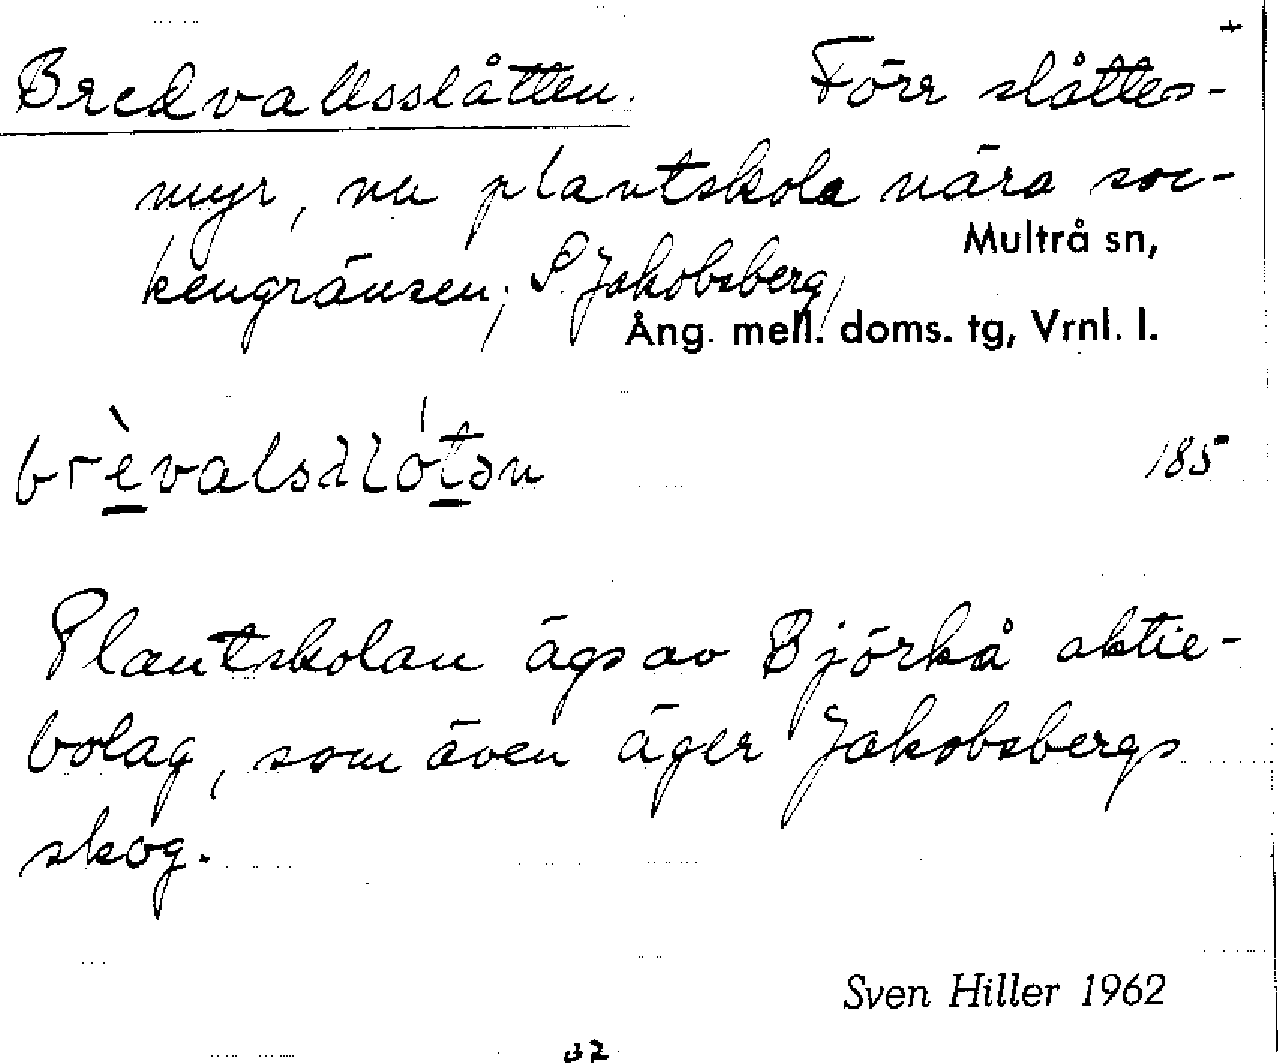 +
Bredvallsslåtten. Förr slåttes-
myr, nu plantskola nära soc-
Multrå sn,
kengränsen, S. Jakobsberg,
Ång. mell. doms. tg, Vrnl. l.
185
Plantskolan ägs av Björkå aktie-
bolag, som även äger Jakobsbergs
skog.
Sven Hiller 1962
32